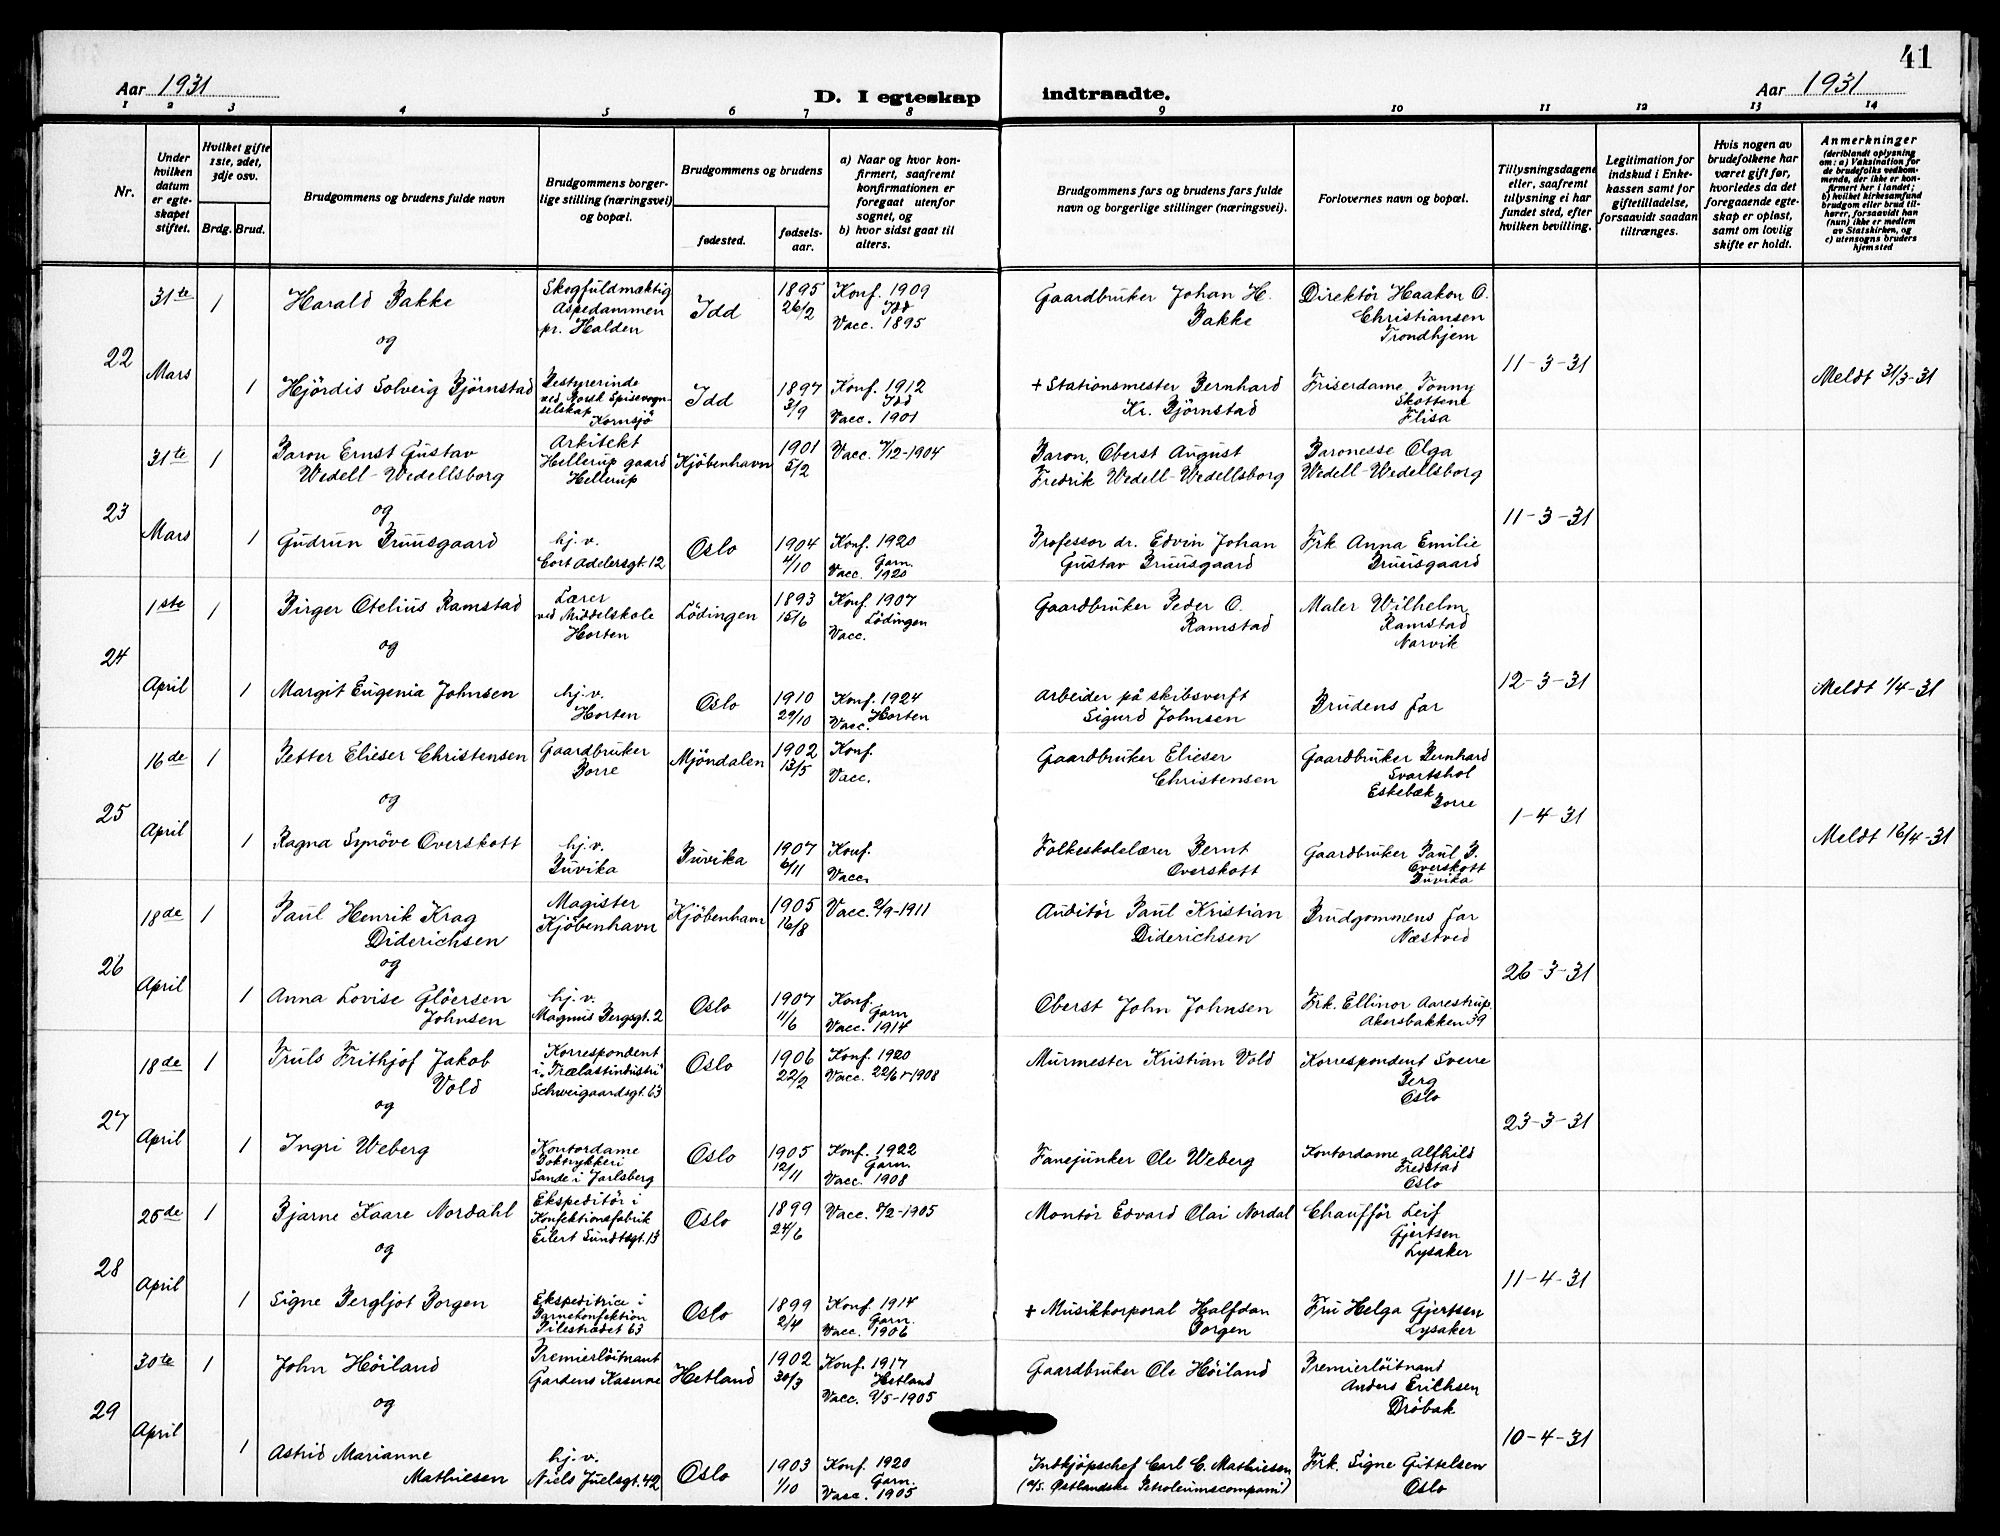 41
Aar 1931
D. I egteskap indtraadte.
Aar 1931
1 2 3 4 5 6 7 8 9 10 11 12 13 14
Nr.
Under hvilken datum er egteskapet stiftet.
Hvilket gifte 1ste, 2det, 3dje osv.
Brdg. Brud.
Brudgommens og brudens fulde navn
Brudgommens borgerlige stilling (næringsvei) og bopæl.
Brudgommens og brudens
fødested.
fødselsaar.
a) Naar og hvor konfirmert, saafremt konfirmationen er foregaat utenfor sognet, og
b) hvor sidst gaat til alters.
Brudgommens fars og brudens fars fulde navn og borgerlige stillinger (næringsvei).
Forlovernes navn og bopæl.
Tillysningsdagene eller, saafremt tillysning ei har fundet sted, efter hvilken bevilling.
Legitimation for indskud i Enkekassen samt for giftetilladelse, forsaavidt saadan tiltrænges.
Hvis nogen av brudefolkene har været gift før, hvorledes da det foregaaende egteskap er opløst, samt om lovlig skifte er holdt.
Anmerkninger (deriblandt oplysning om: a) Vaksination for de brudefolks vedkommende, der ikke er konfirmert her i landet; b) hvilket kirkesamfund brudgom eller brud tilhører, forsaavidt han (hun) ikke er medlem av Statskirken, og c) utensogns bruders hjemsted
22
31te Mars
1
Harald Bakke
og
Skogfuldmæktig
Aspedammen
pr. Halden
Idd
1895
26/2
Konf. 1909
Idd
Vacc. 1895
Gaardbruker Johan H.
Bakke
Direktör Haakon O.
Christiansen
Trondhjem
11-3-31
1
Hjördis Solveig Bjørnstad
Bestyrerinde
ved Norsk Spisevogn-
selskap
Kornsjö
Idd
1897
3/9
Konf. 1912
Idd
Vacc. 1901
+ Stationsmester Bernhard
Kr. Bjørnstad
Friserdame Tonny
Skottene
Flisa
Meldt 31/3-31
23
31te Mars
1
Baron Ernst Gustav
Wedell-Wedellsborg
og
Arkitekt
Hellerup gaard
Hellerup
Kjöbenhavn
1901
5/2
Vacc. 7/12-1904
Baron, Oberst August
Fredrik Wedell-Wedellsborg
Baronesse Olga
Wedell-Wedellsborg
11-3-31
1
Gudrun Bruusgaard
hj.v.
Cort Adelersgt. 12
Oslo
1904
4/10
Konf. 1920
Garn.
Vacc. 1920
Professor dr. Edvin Johan
Gustav Bruusgaard
Frk Anna Emilie
Bruusgaard
24
1ste April
1
Birger Otelius Ramstad
og
Lærer
ved Middelskole
Horten
Lödingen
1893
15/6
Konf. 1907
Lödingen
Vacc.
Gaardbruker Peder O.
Ramstad
Maler Wilhelm
Ramstad
Narvik
12-3-31
1
Margit Eugenia Johnsen
hj.v.
Horten
Oslo
1910
29/10
Konf. 1924
Horten
Vacc.
Arbeider på skibsverft
Sigurd Johnsen
Brudens far
Meldt 1/4-31
25
16de April
1
Petter Elieser Christensen
og
Gaardbruker
Borre
Mjöndalen
1902
13/5
Konf.
Vacc.
Gaardbruker Elieser
Christensen
Gaardbruker Bernhard
Svartshol
Eskebæk
Borre
1-4-31
1
Ragna Synöve Overskott
hj.v.
Buvika
Buvika
1907
6/11
Konf.
Vacc.
Folkeskolelærer Bernt
Overskott
Gaardbruker Paul B.
Overskott
Buvika
Meldt 16/4-31
26
18de April
1
Paul Henrik Krag
Diderichsen
og
Magister
Kjöbenhavn
Kjöbenhavn
1905
16/8
Vacc. 2/9-1911
Auditör Paul Kristian
Diderichsen
Brudgommens far
Næstved
26-3-31
1
Anna Lovise Glöersen
Johnsen
hj.v.
Magnus Bergsgt. 2
Oslo
1907
11/6
Konf.
Garn
Vacc. 1914
Oberst John Johnsen
Frk. Ellinor Aarestrup
Akersbakken 39
27
18de April
1
Truls Frithjof Jakob
Vold
og
Korrespondent
i Trælastindustri
Schweigaardsgt. 63
Oslo
1906
22/2
Konf. 1920
Vacc. 22/6-1908
Murmester Kristian Vold
Korrespondent Sverre
Berg
Oslo
23-3-31
1
Ingri Weberg
Kontordame
Boktrykkeri
Sande i Jarlsberg
Oslo
1905
12/11
Konf. 1922
Garn.
Vacc. 1908
Fanejunker Ole Weberg
Kontordame Alfhild
Fredstad
Oslo
28
25de April
1
Bjarne Kaare Nordahl
og
Ekspeditör i
Konfektionsfabrik
Eilert Sundtsgt. 13
Oslo
1899
24/6
Vacc. 8/2-1905
Montör Edvard Olai Nordal
Chaufför Leif
Gjertsen
Lysaker
11-4-31
1
Signe Bergljot Borgen
Ekspeditrice i
Barnekonfektion
Pilestrædet 63
Oslo
1899
2/4
Konf. 1914
Garn.
Vacc. 1906
+ Musikkorporal Halfdan
Borgen
Fru Helga Gjertsen
Lysaker
29
30te April
1
John Höiland
og
Premierlöitnant
Gardens Kaserne
Hetland
1902
30/3
Konf. 1917
Hetland
Vacc. 9/5-1905
Gaardbruker Ole Höiland
Premierlöitnant
Anders Erichsen
Dröbak
10-4-31
1
Astrid Marianne
Mathiesen
hj.v.
Niels Juelsgt. 42
Oslo
1903
1/10
Konf. 1920
Garn.
Vacc. 1905
Indkjöpschef Carl C. Mathiesen
(A/S. Østlandske Petroleumscompani)
Frk. Signe Gittelsen
Oslo